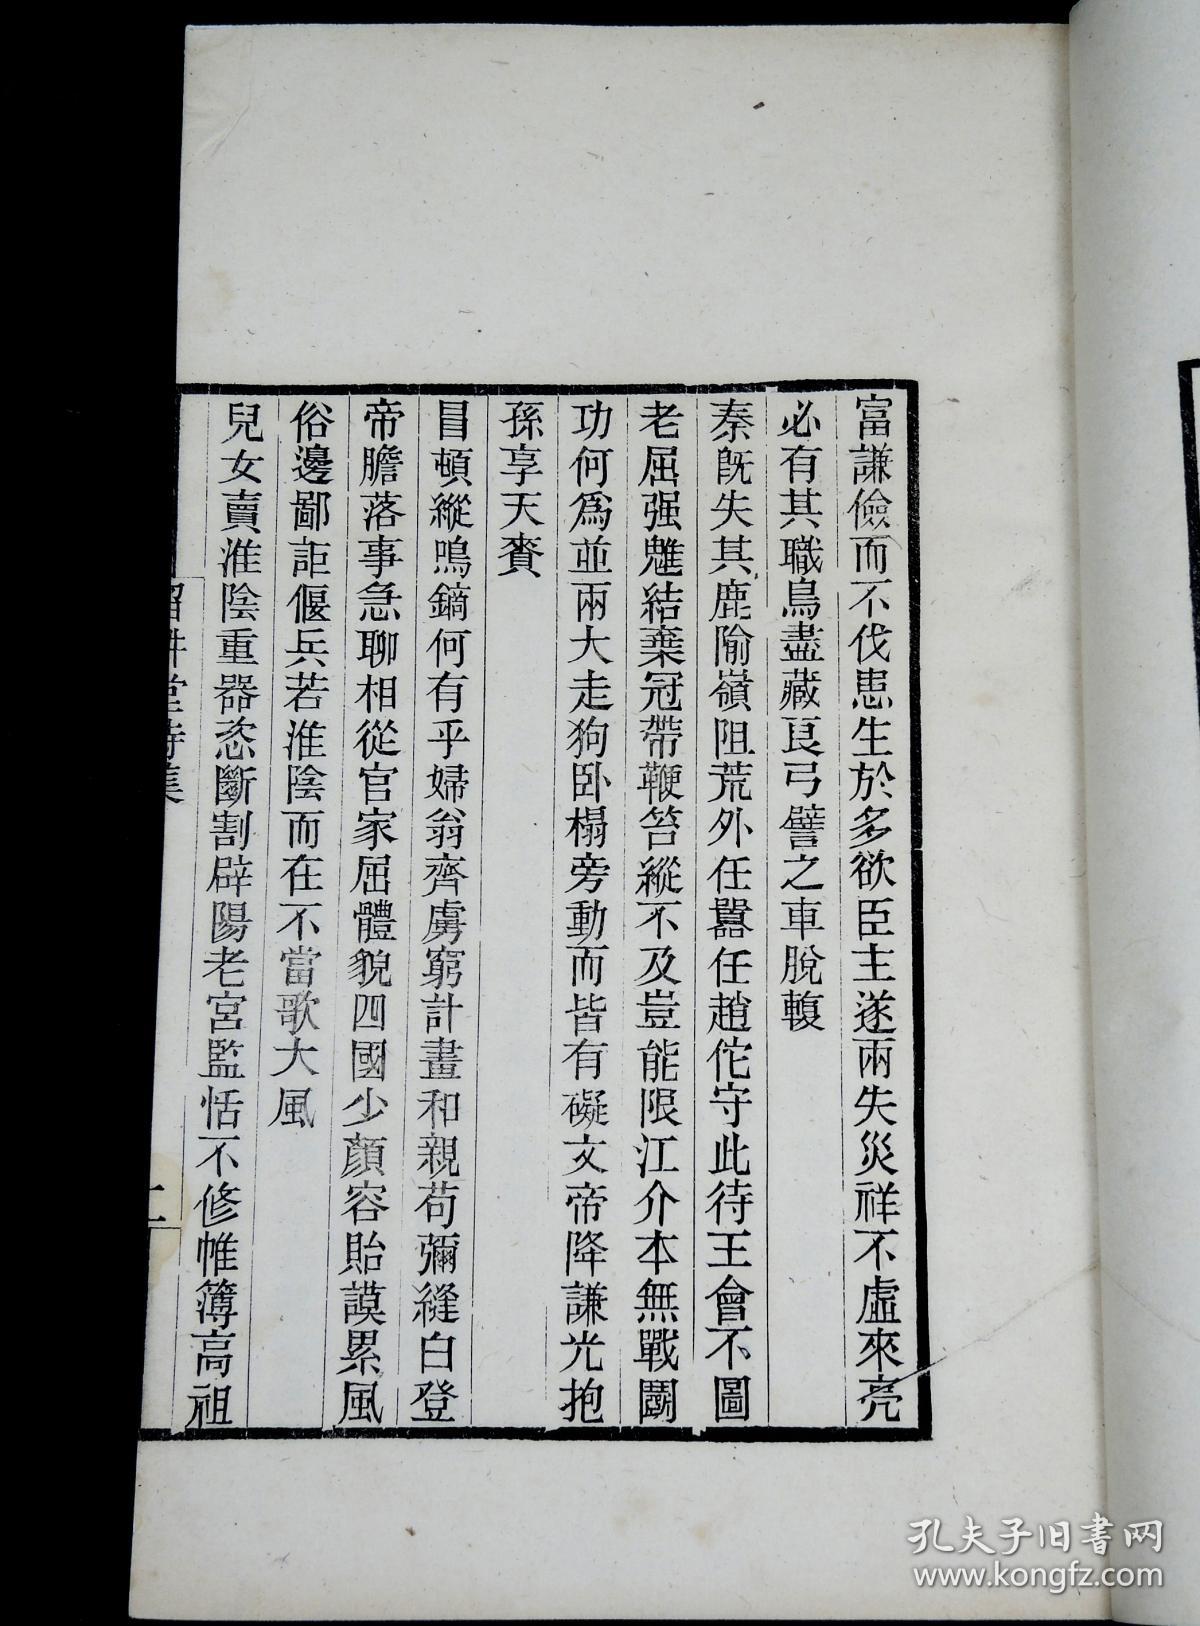 富謙儉而不伐患生於多欲臣主遂兩失災祥不虛來亮
必有其職鳥盡藏良弓譬之車脫輹
秦旣失其鹿隃嶺阻荒外任囂任趙佗守此待王會不圖
老屈强魋結棄冠帶鞭笞縱不及豈能限江介本無戰鬭
功何爲並兩大走狗卧榻旁動而皆有礙文帝降謙光抱
孫享天賚
冒頓縱鳴鏑何有乎婦翁齊虜窮計畫和親苟彌縫白登
帝膽落事急聊相從官家屈體貌四國少顏容貽謨累風
俗邊鄙詎偃兵若淮陰而在不當歌大風
兒女賣淮陰重器恣斷割辟陽老宮監恬不修帷簿高祖
堂詩集
孔夫子旧书网
www.kongfz.com